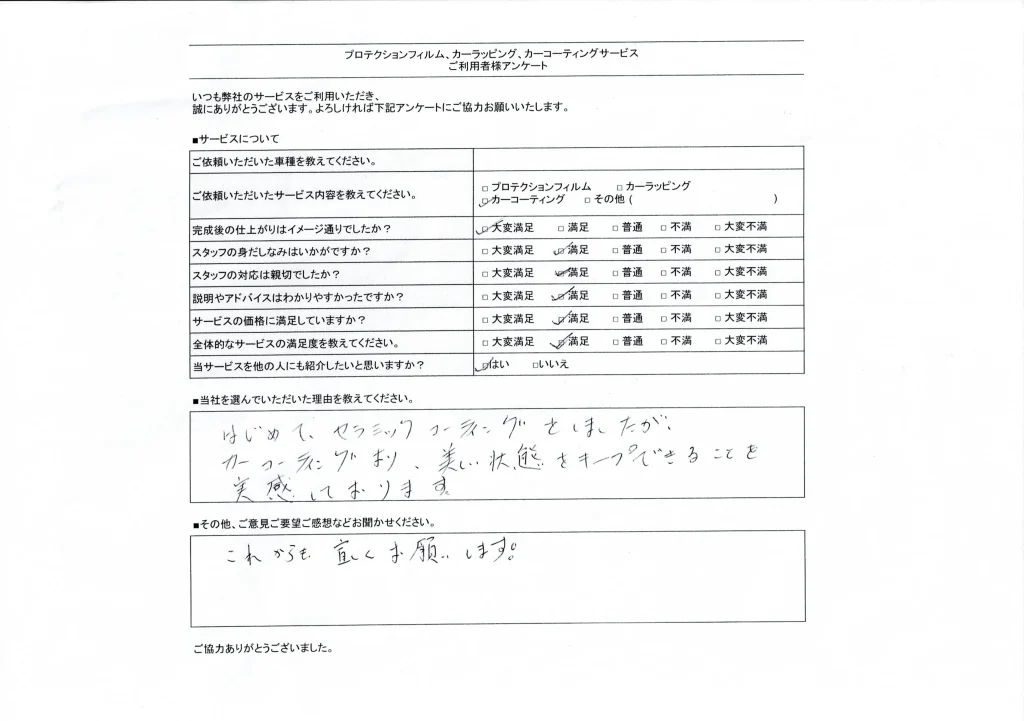 プロテクションフィルム、カーラッピング、カーコーティングサービス
ご利用者様アンケート
いつも弊社のサービスをご利用いただき、
誠にありがとうございます。よろしければ下記アンケートにご協力お願いいたします。
■サービスについて
ご依頼いただいた車種を教えてください。
ご依頼いただいたサービス内容を教えてください。
□ プロテクションフィルム □ カーラッピング
☑ カーコーティング □ その他 ( )
完成後の仕上がりはイメージ通りでしたか? ☑ 大変満足 □ 満足 □ 普通 □ 不満 □ 大変不満
スタッフの身だしなみはいかがですか? □ 大変満足 ☑ 満足 □ 普通 □ 不満 □ 大変不満
スタッフの対応は親切でしたか? □ 大変満足 ☑ 満足 □ 普通 □ 不満 □ 大変不満
説明やアドバイスはわかりやすかったですか? □ 大変満足 ☑ 満足 □ 普通 □ 不満 □ 大変不満
サービスの価格に満足していますか? □ 大変満足 ☑ 満足 □ 普通 □ 不満 □ 大変不満
全体的なサービスの満足度を教えてください。 □ 大変満足 ☑ 満足 □ 普通 □ 不満 □ 大変不満
当サービスを他の人にも紹介したいと思いますか? ☑はい □いいえ
■当社を選んでいただいた理由を教えてください。
はじめて、セラミックコーティングをしましたが、
カーコーティングより、美しい状態をキープできることを
実感しております。
■その他、ご意見ご要望ご感想などお聞かせください。
これからも宜しくお願いします。
ご協力ありがとうございました。